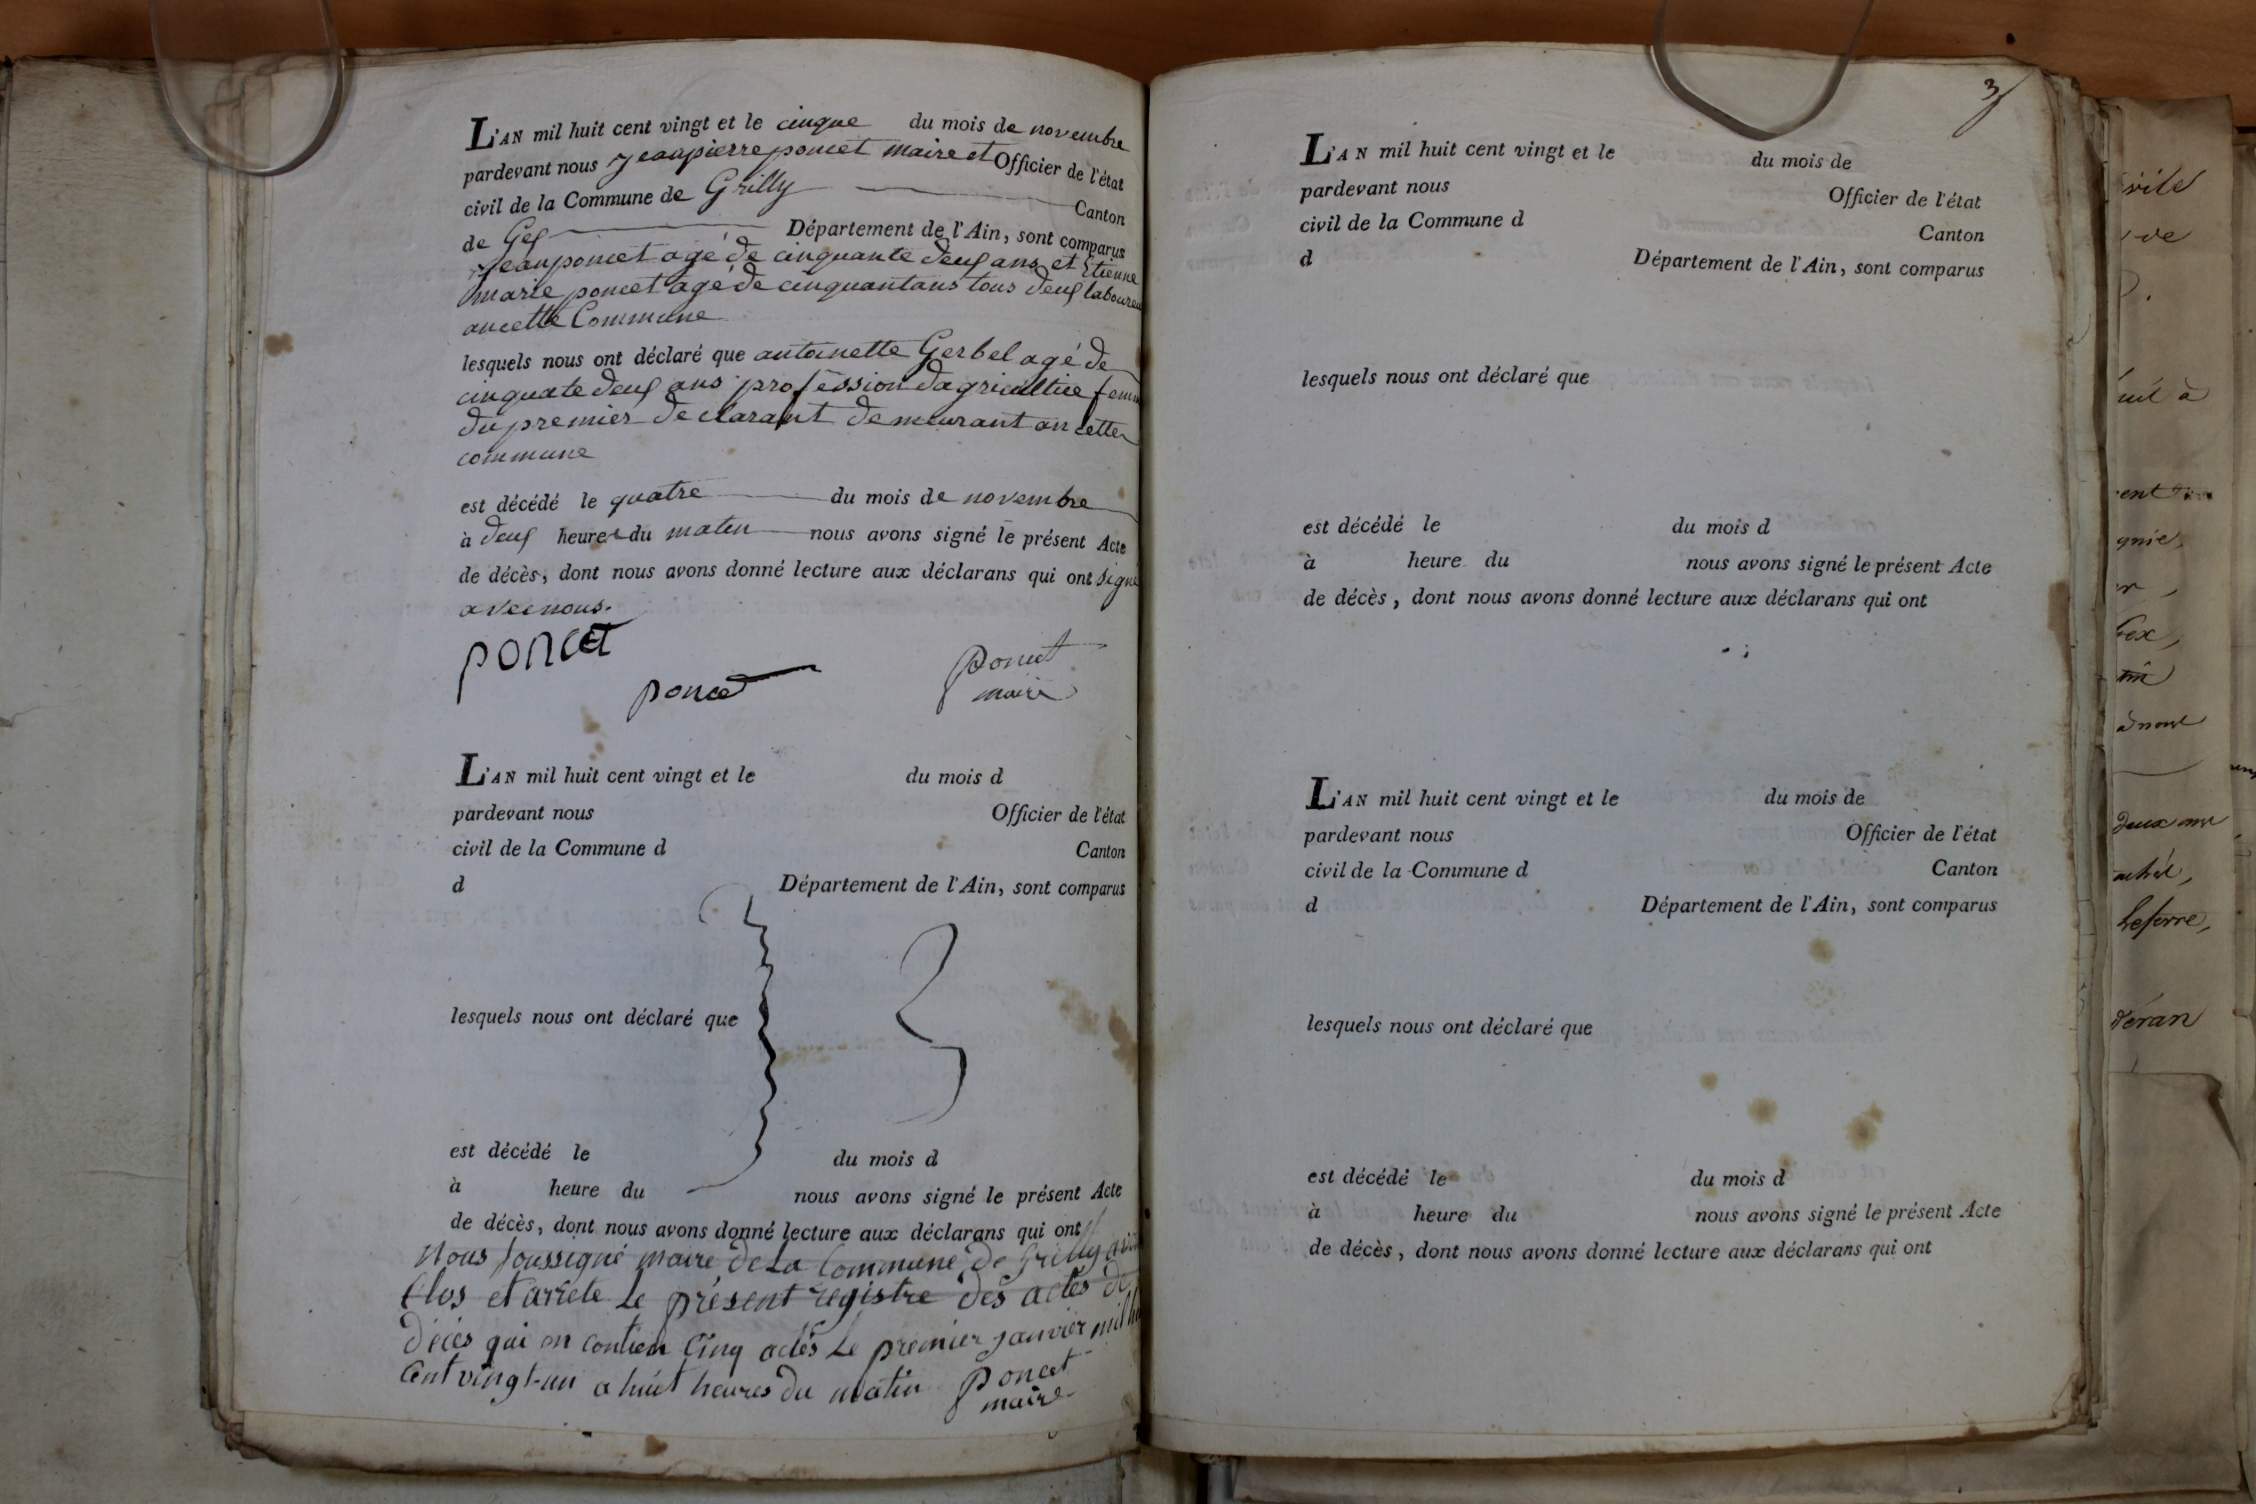 L'AN mil huit cent vingt et le cinque du mois de novembre
pardevant nous jeanpierre poncet maire et Officier de l'état
civil de la Commune de Grilly Canton
de Gex Département de l'Ain, sont comparus
jean poncet agé de cinquante deux ans et Etienne
marie poncet agé de cinquantans tous deux laboureu
au cette Commune
lesquels nous ont déclaré que antoinette Gerbel agé de
cinquate deux ans profession dagricultice fem
du premier declarant demeurant an cette
commune
est décédé le quatre du mois de novembre
à deux heures du maten nous avons signé le présent Acte
de décès, dont nous avons donné lecture aux déclarans qui ont signé
avec nous.
poncet
poncet
Poncet
maire
L'AN mil huit cent vingt et le du mois d
pardevant nous Officier de l'état
civil de la Commune d Canton
d Département de l'Ain, sont comparus
lesquels nous ont déclaré que
est décédé le du mois d
à heure du nous avons signé le présent Acte
de décès, dont nous avons donné lecture aux déclarans qui ont
Nous soussigné maire de La Commune de Grilly
Clos et arrete Le présent registre dés actes de
décés qui en contien Cinq actes Le premier janvier mil
Cent vingt-un a huit heures du matin
Poncet
maire
3
L'AN mil huit cent vingt et le du mois de
pardevant nous Officier de l'état
civil de la Commune d Canton
d Département de l'Ain, sont comparus
lesquels nous ont déclaré que
est décédé le du mois d
à heure du nous avons signé le présent Acte
de décès, dont nous avons donné lecture aux déclarans qui ont
L'AN mil huit cent vingt et le du mois de
pardevant nous Officier de l'état
civil de la Commune d Canton
d Département de l'Ain, sont comparus
lesquels nous ont déclaré que
est décédé le du mois d
à heure du nous avons signé le présent Acte
de décès, dont nous avons donné lecture aux déclarans qui ont